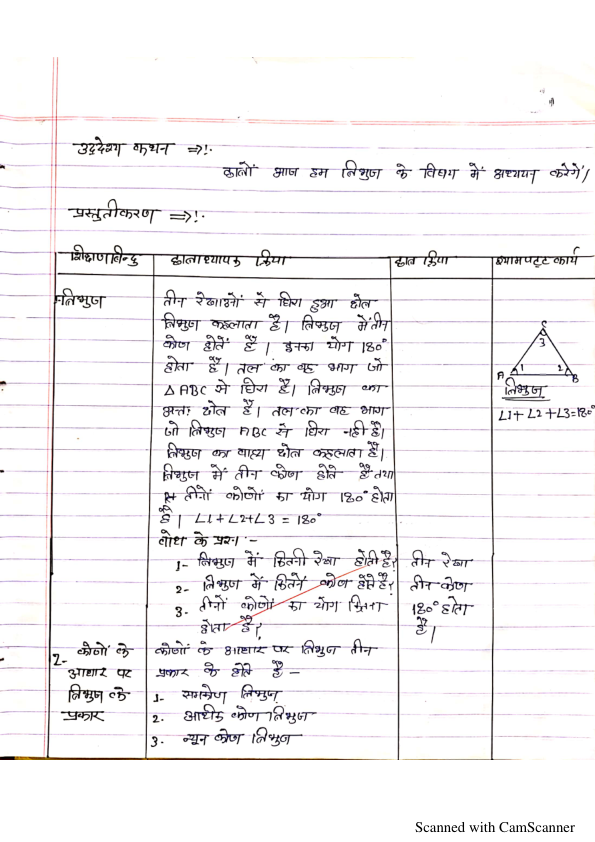 उद्देश्य कथन ⇒!-
छात्रों आज हम त्रिभुज के विषय में अध्ययन करेगें/
प्रस्तुतीकरण ⇒!-
शिक्षणबिन्दु छात्राध्यापक क्रिया छात्र क्रिया श्यामपट्ट कार्य
त्रिभुज
तीन रेखाओं से घिरा हुआ क्षेत्र
त्रिभुज कहलाता है। त्रिभुज में तीन
कोण होतें है। इनका योग 180°
होता है। तल का वह भाग जो
△ABC से घिरा है। त्रिभुज का
अन्तः क्षेत्र है। तल का वह भाग
जो त्रिभुज ABC से घिरा नही है।
त्रिभुज का वाह्य क्षेत्र कहलाता है।
त्रिभुज में तीन कोण होते है तथा
तीनों कोणों का योग 180° होता
है। ∠1+∠2+∠3 = 180°
C
3
A 1 2 B
त्रिभुज
∠1+∠2+∠3=180°
बोध के प्रश्न :-
1- त्रिभुज में कितनी रेखा होती है? तीन रेखा
2- त्रिभुज में कितने कोण होते है? तीन कोण
3. तीनों कोणों का योग कितना 180° होता
होता है? है।
2- कोणों के
आधार पर
त्रिभुज के
प्रकार
कोणों के आधार पर त्रिभुज तीन
प्रकार के होते है –
1- समकोण त्रिभुज
2. अधिक कोण त्रिभुज
3. न्यून कोण त्रिभुज
Scanned with CamScanner